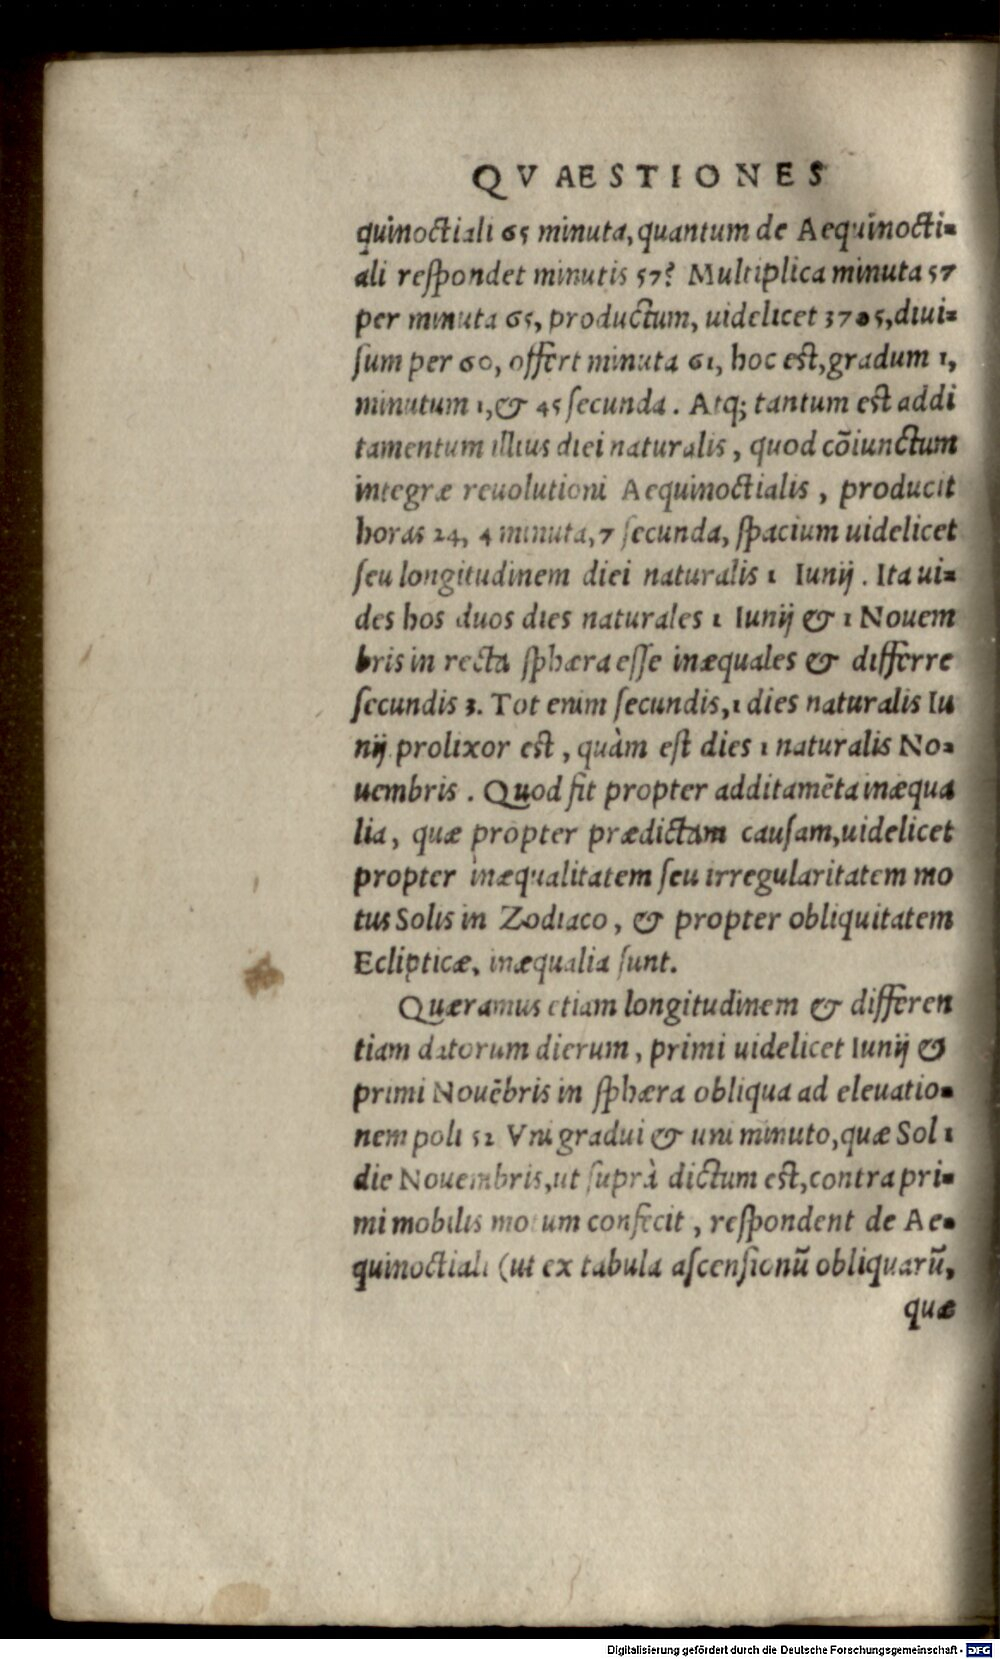 QVAESTIONES
quinoctiali 65 minuta, quantum de Aequinocti-
ali respondet minutis 57? Multiplica minuta 57
per minuta 65, productum, uidelicet 3705, diui-
sum per 60, offert minuta 61, hoc est, gradum 1,
minutum 1, & 45 secunda. Atq; tantum est addi
tamentum illius diei naturalis, quod cõiunctum
integræ reuolutioni Aequinoctialis, producit
horas 24, 4 minuta, 7 secunda, spacium uidelicet
seu longitudinem diei naturalis 1 Iunij. Ita ui-
des hos duos dies naturales 1 Iunij & 1 Nouem
bris in recta sphæra esse inæquales & differre
secundis 3. Tot enim secundis, 1 dies naturalis Iu
nij prolixor est, quàm est dies 1 naturalis No-
uembris. Quod fit propter additamẽta inæqua
lia, quæ propter prædictam causam, uidelicet
propter inæqualitatem seu irregularitatem mo
tus Solis in Zodiaco, & propter obliquitatem
Eclipticæ, inæqualia sunt.
Quæramus etiam longitudinem & differen
tiam datorum dierum, primi uidelicet Iunij &
primi Nouẽbris in sphæra obliqua ad eleuatio-
nem poli 52 Vni gradui & uni minuto, quæ Sol 1
die Nouembris, ut suprà dictum est, contra pri-
mi mobilis motum confecit, respondent de Ae-
quinoctiali (ut ex tabula ascensionũ obliquarũ,
quæ
Digitalisierung gefördert durch die Deutsche Forschungsgemeinschaft - DFG